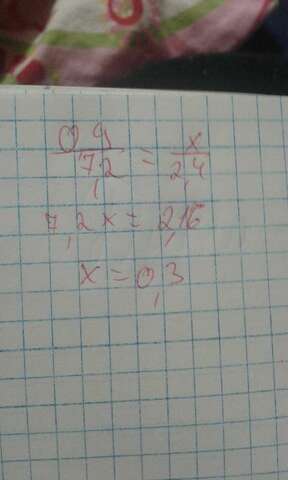 0,9/7,2 = x/2,4
7,2x = 2,16
x = 0,3